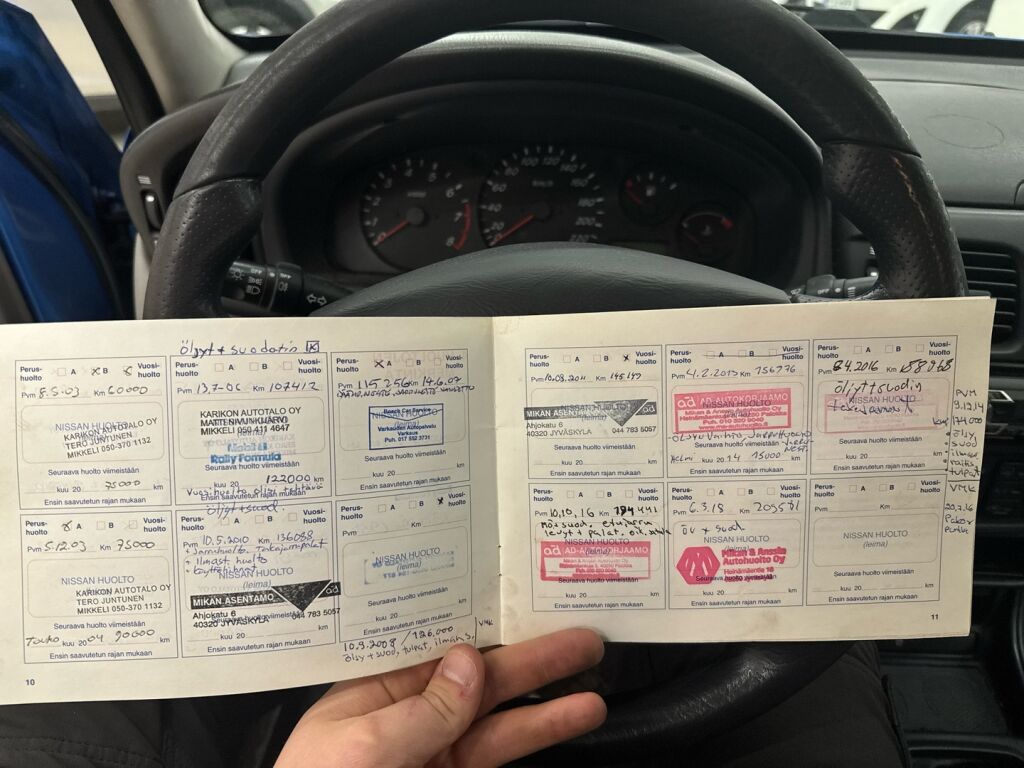 öljyt + suodatin
Perus-huolto A B Vuosi-huolto
Pvm 8.5.03 Km 60000
NISSAN HUOLTO
KARIKON AUTOTALO OY
TERO JUNTUNEN
MIKKELI 050-370 1132
Seuraava huolto viimeistään
kuu 20 75000 km
Ensin saavutetun rajan mukaan
Perus-huolto A B Vuosi-huolto
Pvm 13.7-06 Km 107412
KARIKON AUTOTALO OY
MATTI NIVUNKIJÄRVI
MIKKELI 050 411 4647
Mobil
Rally Formula
Seuraava huolto viimeistään
kuu 20 122000 km
Vuosihuolto olisi tehtävä
Ensin saavutetun rajan mukaan
Perus-huolto A B Vuosi-huolto
Pvm 115256 Km 14.6.07
NISSAN HUOLTO
Bosch Car Service
Varkauden Autopalvelu
Varkaus
Puh. 017 552 3731
Seuraava huolto viimeistään
kuu 20 km
Ensin saavutetun rajan mukaan
Perus-huolto A B Vuosi-huolto
Pvm 5.12.03 Km 75000
NISSAN HUOLTO
(leima)
KARIKON AUTOTALO OY
TERO JUNTUNEN
MIKKELI 050-370 1132
Seuraava huolto viimeistään
Touko kuu 2004 90000 km
Ensin saavutetun rajan mukaan
öljyt+suod.
Perus-huolto A B Vuosi-huolto
Pvm 10.5.2010 Km 136088
+ Jarruhuolto. Takajarrupalat
+ ilmast. huolto
NISSAN HUOLTO
(leima)
MIKAN ASENTAMO ad
Ahjokatu 6
40320 JYVÄSKYLÄ 044 783 5057
Seuraava huolto viimeistään
kuu 20 km
Ensin saavutetun rajan mukaan
Perus-huolto A B Vuosi-huolto
Pvm Km
NISSAN HUOLTO
(leima)
Seuraava huolto viimeistään
kuu 20 km
Ensin saavutetun rajan mukaan
10.9.2008 / 126.000
öljy + suod, tulpat, ilmans. VMK
10
Perus-huolto A B Vuosi-huolto
Pvm 10.08.2011 Km 145149
NISSAN HUOLTO
(leima)
MIKAN ASENTAMO ad
Ahjokatu 6
40320 JYVÄSKYLÄ 044 783 5057
Seuraava huolto viimeistään
kuu 20 km
Ensin saavutetun rajan mukaan
Perus-huolto A B Vuosi-huolto
Pvm 4.2.2013 Km 156776
ad AD-AUTOKORJAAMO
Mikan & Anssin Autohuolto Oy
Seuraava huolto viimeistään
Helmi kuu 2014 15000 km
Ensin saavutetun rajan mukaan
Perus-huolto A B Vuosi-huolto
Pvm 8.4.2016 Km 188968
NISSAN HUOLTO
(leima)
Seuraava huolto viimeistään
kuu 20 km
Ensin saavutetun rajan mukaan
PVM
9.12.14
174000
öljy
suod
ilmans
raitis
tulpat
VMK
Perus-huolto A B Vuosi-huolto
Pvm 10.10.16 Km 194441
etujarru
levyt + palat.
NISSAN HUOLTO
(leima)
ad AD-AUTOKORJAAMO
Seuraava huolto viimeistään
kuu 20 km
Ensin saavutetun rajan mukaan
Perus-huolto A B Vuosi-huolto
Pvm 6.3.18 Km 205581
öv + suod
NISSAN HUOLTO
(leima)
Mikan & Anssin
Autohuolto Oy
Seuraava huolto viimeistään
kuu 20 km
Ensin saavutetun rajan mukaan
Perus-huolto A B Vuosi-huolto
Pvm Km
NISSAN HUOLTO
(leima)
Seuraava huolto viimeistään
kuu 20 km
Ensin saavutetun rajan mukaan
VMK
20.7.16
11